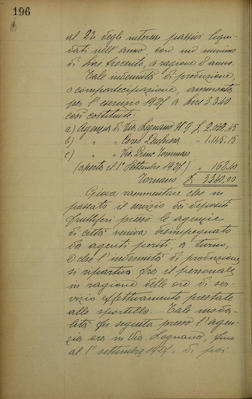 196
al 2% degli interessi passivi liqui-
dati nell'anno, con un minimo
di lire trecento, a ragione d'anno.
Tale indennità di produzione,
o compartecipazione, ammontò
per l'esercizio 1927 a lire 3340
così costituite:
a) Agenzia di Via Legnano N 9 £ 2,022.85
b) " Corso 1.145.15
c) " Via Priv
(aperta il 1° Settembre 1927)
Tornano £ 3340.00
Giova rammentare che in
passato il servizio di depositi
fruttiferi presso le agenzie
di città veniva disimpegnato
da agenti posti, a turno,
e che l'indennità di produzione
si ripartiva fra il personale
in ragione delle ore di ser-
vizio effettivamente prestate
allo sportello. Tale moda-
lità fu seguita presso l'agen-
zia ora in Via Legnano, fino
al 1° settembre 1927. Di poi